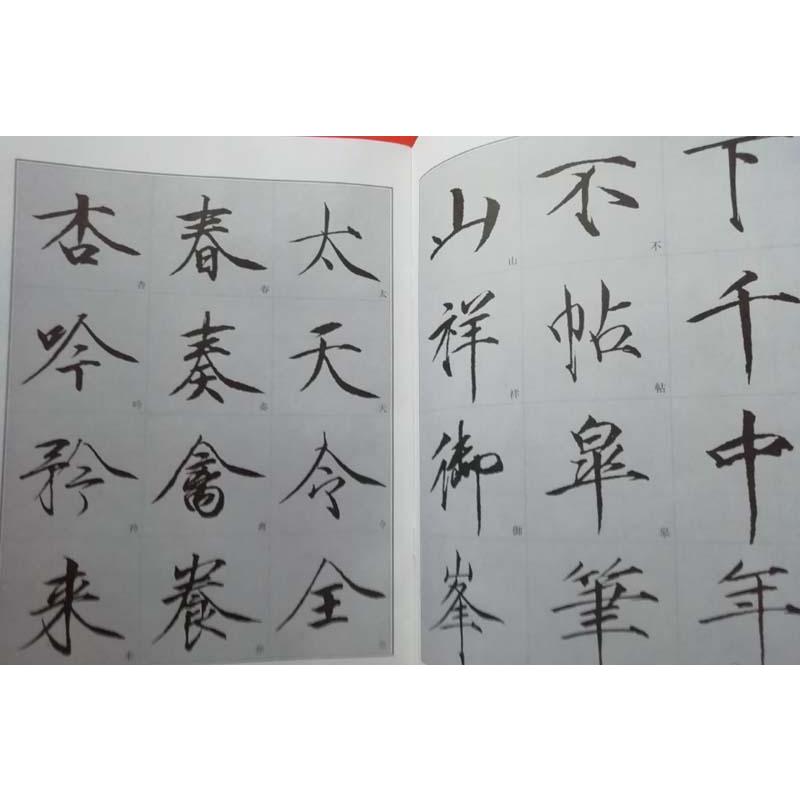 下千中年
不帖皋筆
山祥御峯
不帖皋
山祥御
太天令全
春奏禽養
杏吟矜来
太天令
春奏
杏吟矜来